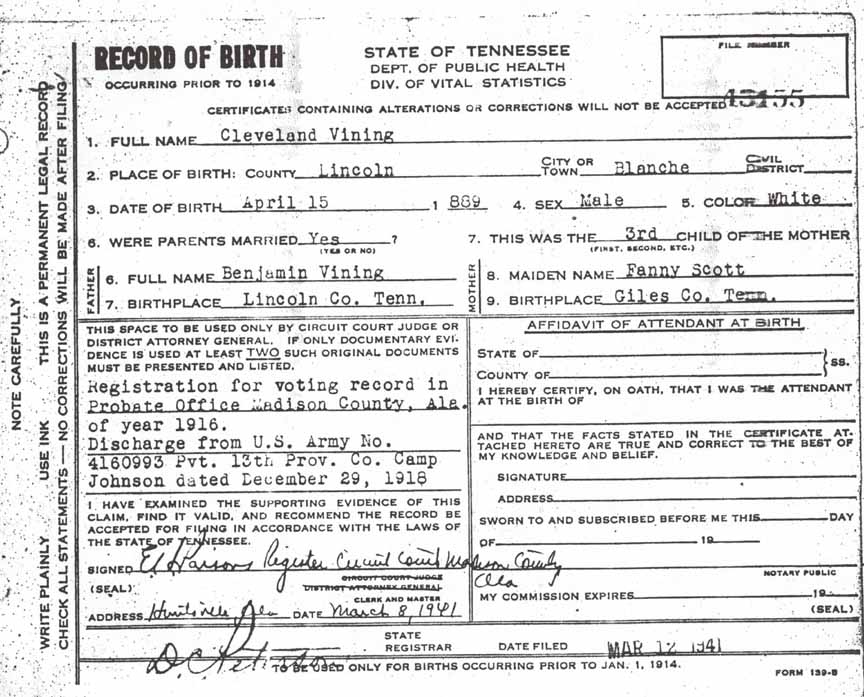 RECORD OF BIRTH
OCCURRING PRIOR TO 1914
STATE OF TENNESSEE
DEPT. OF PUBLIC HEALTH
DIV. OF VITAL STATISTICS
FILE NUMBER
43155
CERTIFICATES CONTAINING ALTERATIONS OR CORRECTIONS WILL NOT BE ACCEPTED
1. FULL NAME Cleveland Vining
2. PLACE OF BIRTH: COUNTY Lincoln CITY OR TOWN Blanche CIVIL DISTRICT
3. DATE OF BIRTH April 15 1 889 4. SEX Male 5. COLOR White
6. WERE PARENTS MARRIED Yes ? 7. THIS WAS THE 3rd CHILD OF THE MOTHER
(YES OR NO) (FIRST, SECOND, ETC.)
FATHER
6. FULL NAME Benjamin Vining
7. BIRTHPLACE Lincoln Co. Tenn.
MOTHER
8. MAIDEN NAME Fanny Scott
9. BIRTHPLACE Giles Co. Tenn.
THIS SPACE TO BE USED ONLY BY CIRCUIT COURT JUDGE OR
DISTRICT ATTORNEY GENERAL. IF ONLY DOCUMENTARY EVI-
DENCE IS USED AT LEAST TWO SUCH ORIGINAL DOCUMENTS
MUST BE PRESENTED AND LISTED.
Registration for voting record in
Probate Office Madison County, Ala.
of year 1916.
Discharge from U.S. Army No.
4160993 Pvt. 13th Prov. Co. Camp
Johnson dated December 29, 1918
I HAVE EXAMINED THE SUPPORTING EVIDENCE OF THIS
CLAIM, FIND IT VALID, AND RECOMMEND THE RECORD BE
ACCEPTED FOR FILING IN ACCORDANCE WITH THE LAWS OF
THE STATE OF TENNESSEE.
SIGNED Parsons Register Circuit Court Madison County
Ala
(SEAL)
CIRCUIT COURT JUDGE
DISTRICT ATTORNEY GENERAL
CLERK AND MASTER
ADDRESS Huntsville Ala DATE March 8, 1941
AFFIDAVIT OF ATTENDANT AT BIRTH
STATE OF
COUNTY OF
SS.
I HEREBY CERTIFY, ON OATH, THAT I WAS THE ATTENDANT
AT THE BIRTH OF
AND THAT THE FACTS STATED IN THE CERTIFICATE AT-
TACHED HERETO ARE TRUE AND CORRECT TO THE BEST OF
MY KNOWLEDGE AND BELIEF.
SIGNATURE
ADDRESS
SWORN TO AND SUBSCRIBED BEFORE ME THIS DAY
OF 19
NOTARY PUBLIC
MY COMMISSION EXPIRES 19
(SEAL)
STATE
REGISTRAR DATE FILED MAR 12 1941
TO BE USED ONLY FOR BIRTHS OCCURRING PRIOR TO JAN. 1, 1914.
FORM 139-B
NOTE CAREFULLY
WRITE PLAINLY USE INK THIS IS A PERMANENT LEGAL RECORD
CHECK ALL STATEMENTS — NO CORRECTIONS WILL BE MADE AFTER FILING